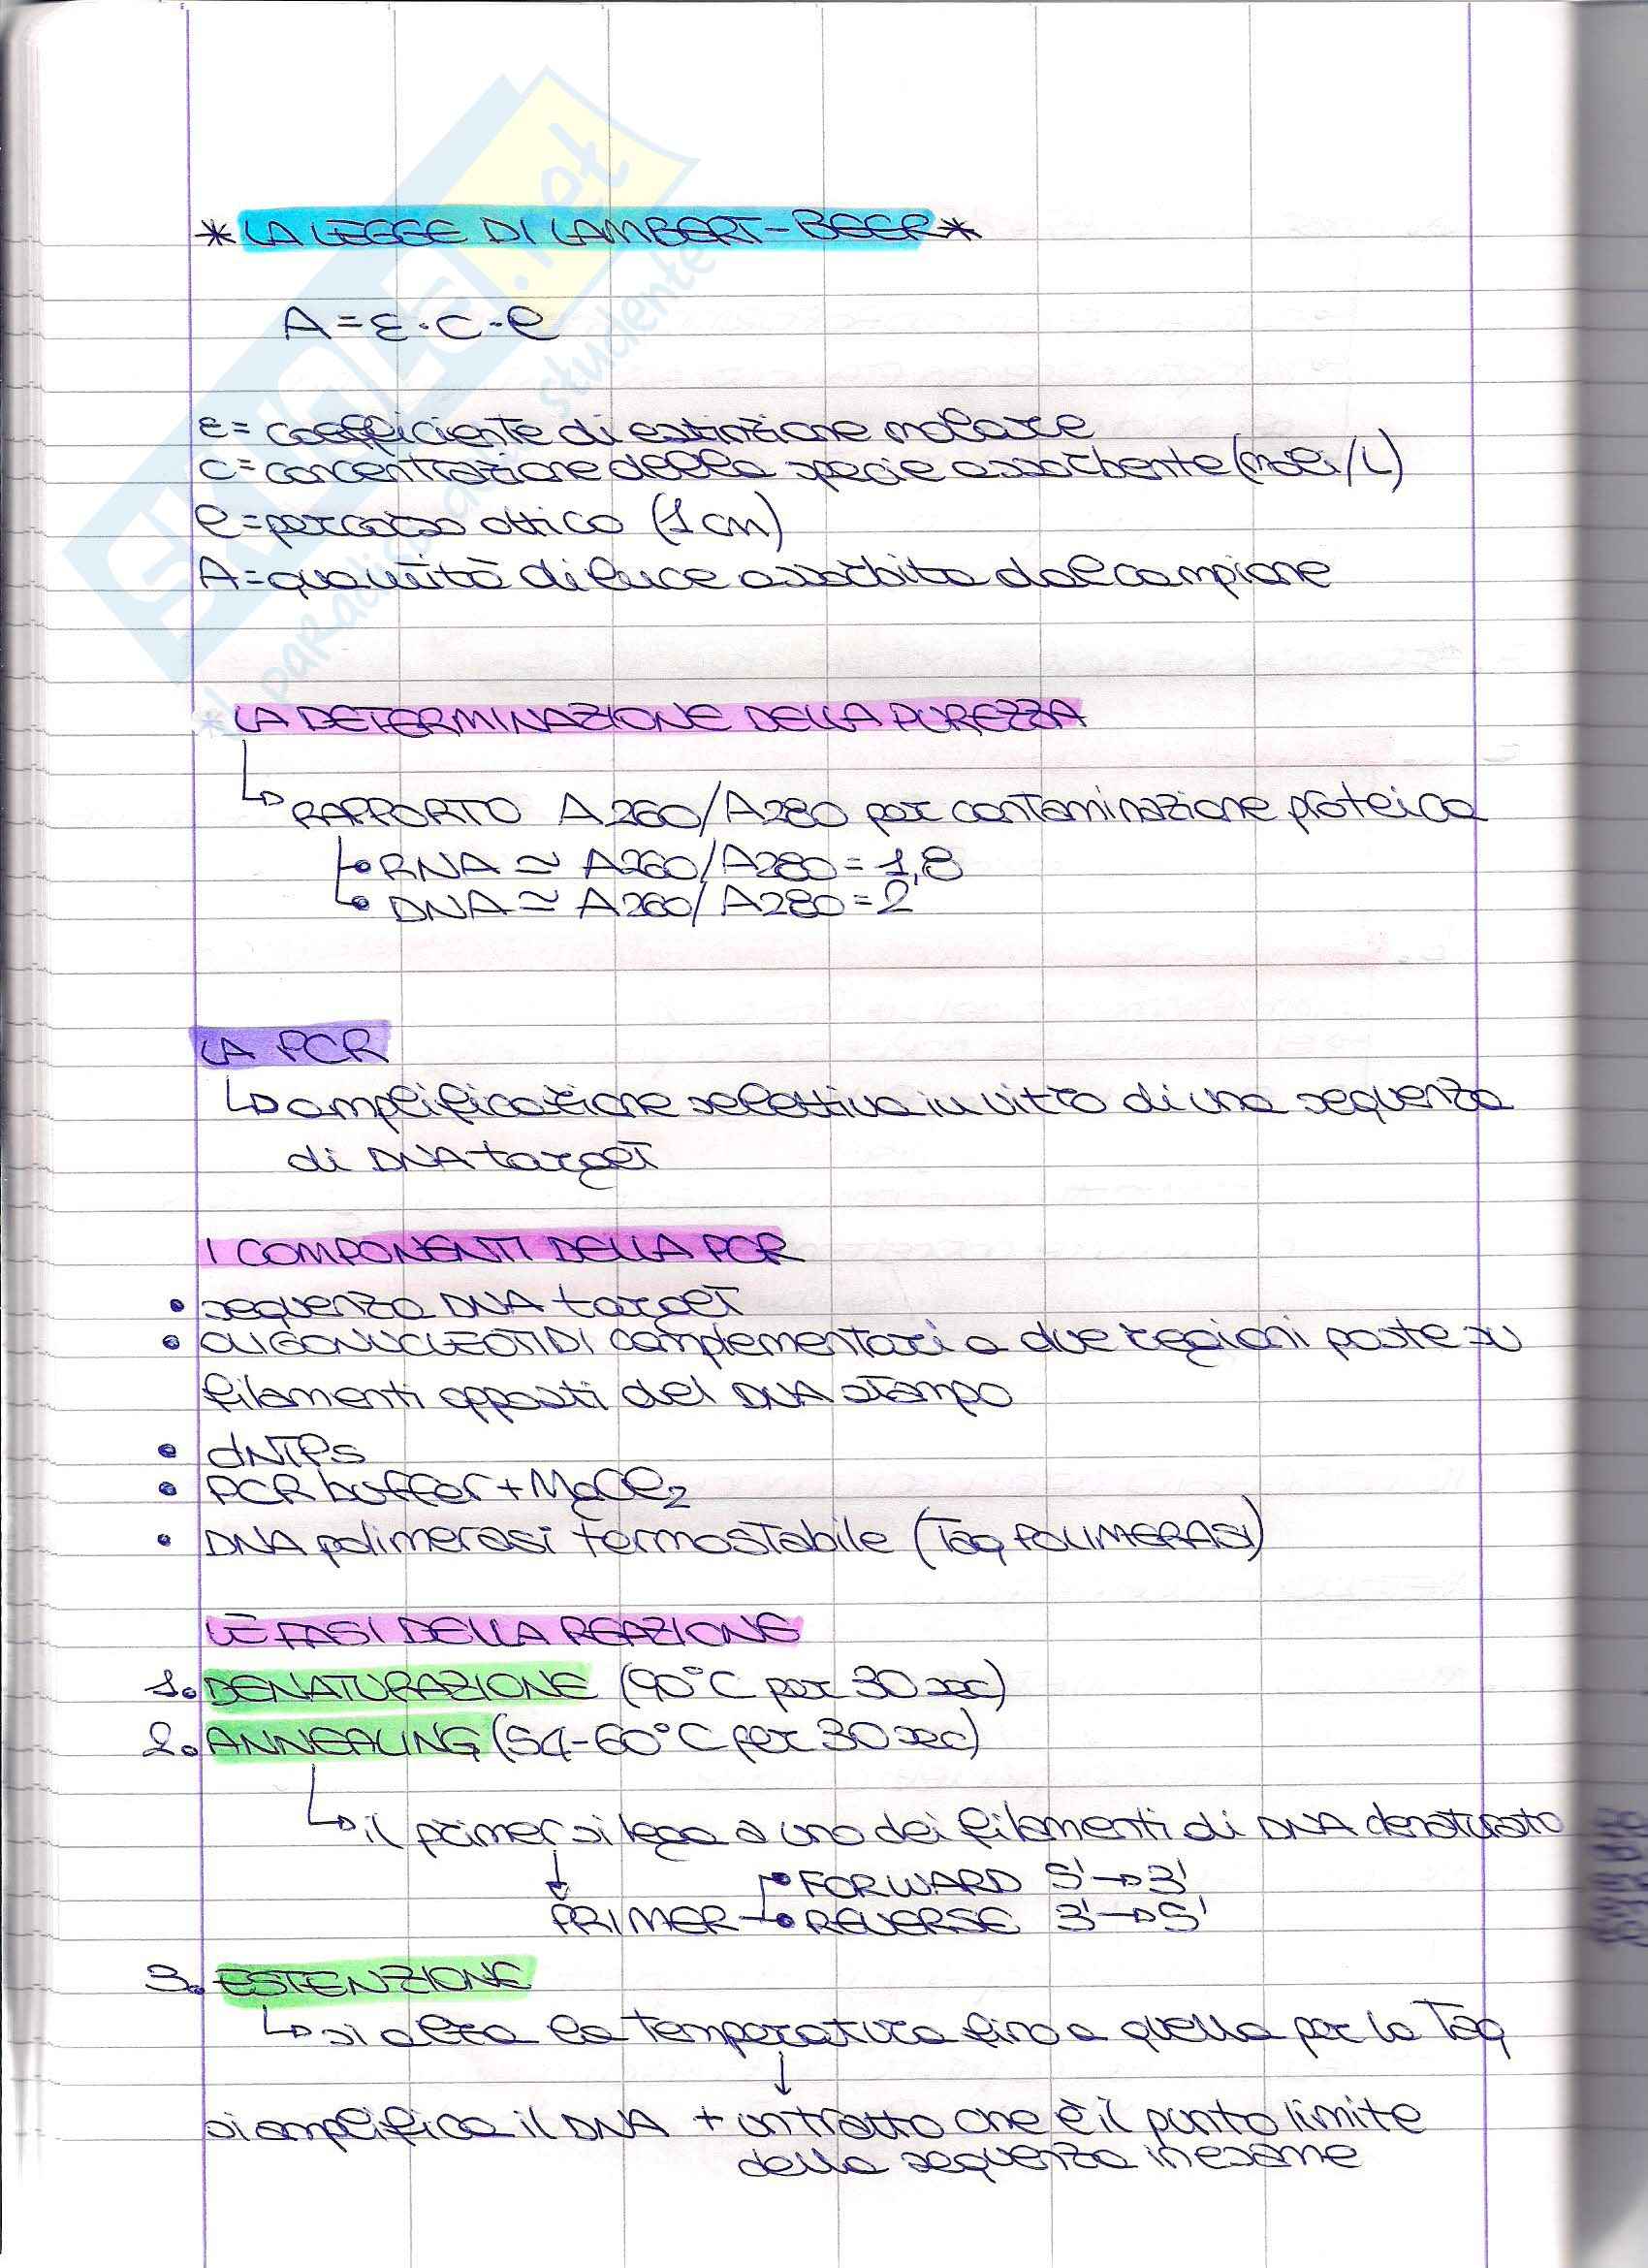 *LA LEGGE DI LAMBERT-BEER*
A=ε·c·l
ε= coefficiente di estinzione molare
c= concentrazione della specie assorbente (moli/L)
l=percorso ottico (1 cm)
A=quantità di luce assorbita dal campione
*LA DETERMINAZIONE DELLA PUREZZA
↳RAPPORTO A260/A280 per contaminazione proteica
•RNA ≃ A260/A280=1,8
• DNA ≃ A260/A280=2
LA PCR
↳amplificazione selettiva in vitro di una sequenza
di DNA target
I COMPONENTI DELLA PCR
• sequenza DNA target
• OLIGONUCLEOTIDI complementari a due regioni poste su
filamenti opposti del DNA stampo
• dNTPs
• PCR buffer+MgCl2
• DNA polimerasi termostabile (Taq POLIMERASI)
LE FASI DELLA REAZIONE
1. DENATURAZIONE (90°C per 30 sec)
2. ANNEALING (54-60°C per 30 sec)
↳il primer si lega a uno dei filamenti di DNA denaturato
↓ •FORWARD 5'→3'
PRIMER •REVERSE 3'→5'
3. ESTENZIONE
↳si alza la temperatura fino a quella per la Taq
↓
si amplifica il DNA + un tratto che è il punto limite
della sequenza in esame
SKUOLA.net
il paradiso dello studente